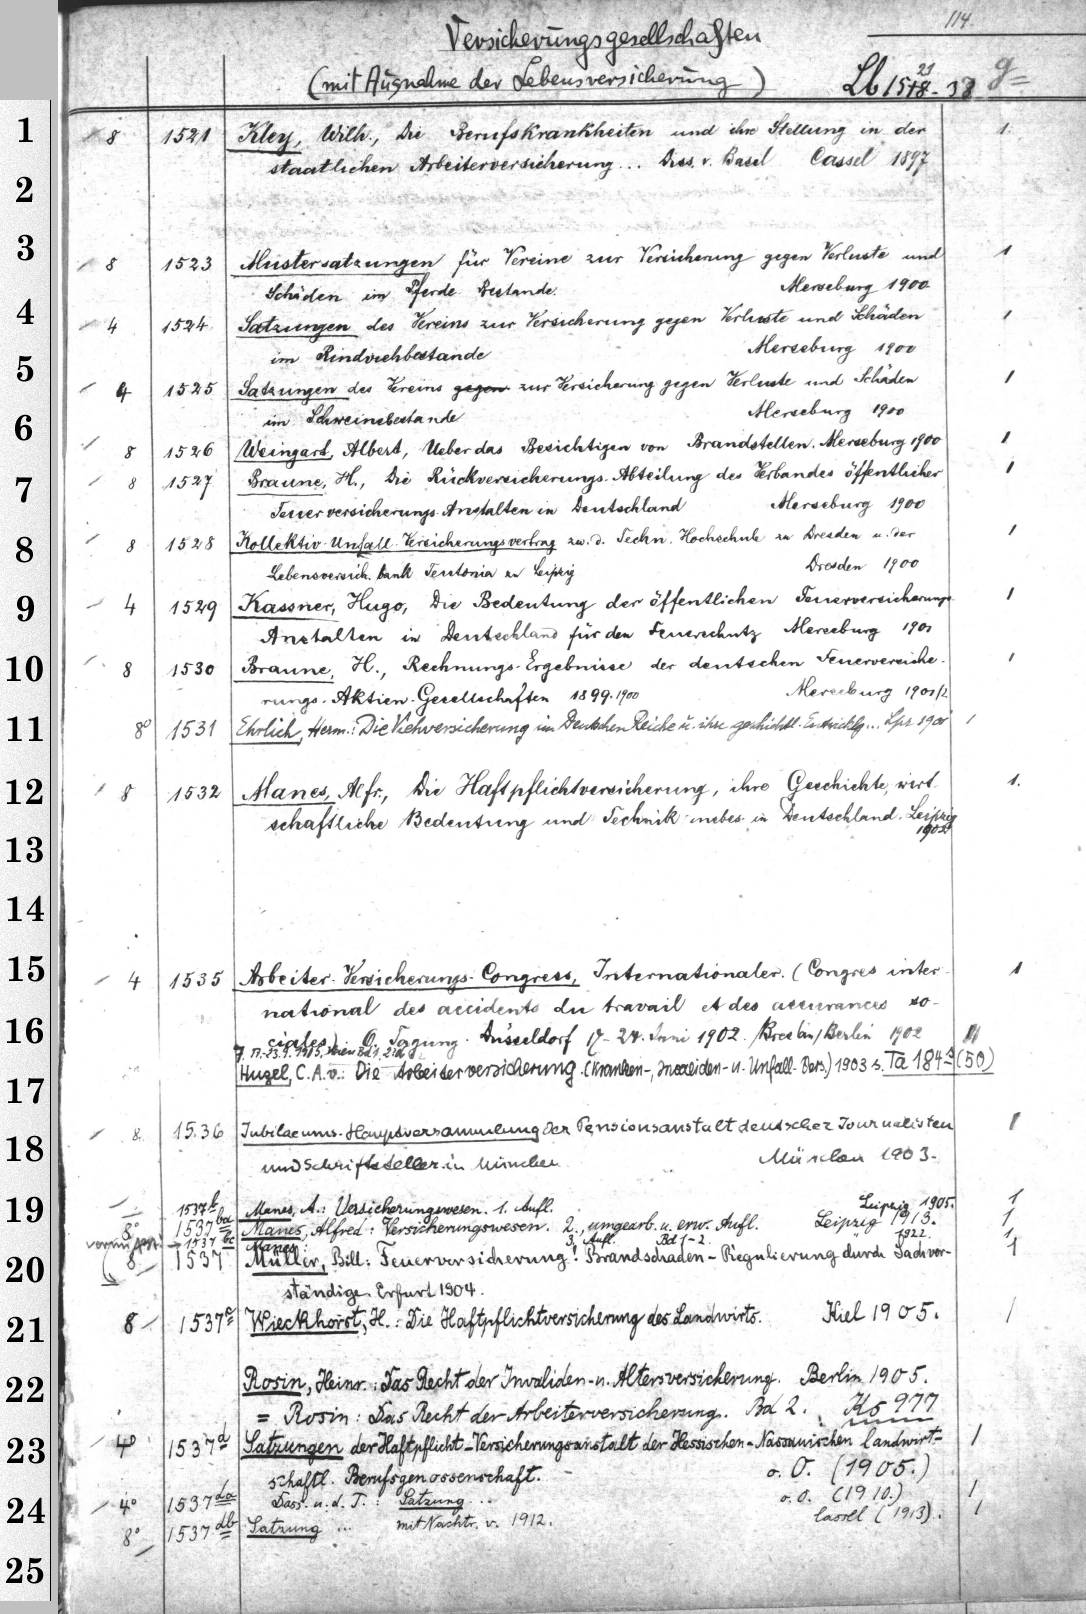 114.
Versicherungsgesellschaften
(mit Ausnahme der Lebensversicherung)
Lb 1518-38
21
g=
1
8 1521 Kley, Wilh., Die Berufskrankheiten und ihre Stellung in der 1.
staatlichen Arbeiterversicherung... Diss. v. Basel Cassel 1897
2
3
8 1523 Mustersatzungen für Vereine zur Versicherung gegen Verluste und 1
Schäden im Pferde Bestande. Merseburg 1900
4
4 1524 Satzungen des Vereins zur Versicherung gegen Verluste und Schäden 1
im Rindviehbestande Merseburg 1900
5
4 1525 Satzungen des Vereins gegen zur Versicherung gegen Verluste und Schäden 1
im Schweinebestande Merseburg 1900
6
8 1526 Weingart, Albert, Ueber das Besichtigen von Brandstellen. Merseburg 1900 1
7
8 1527 Braune, H., Die Rückversicherungs-Abteilung des Verbandes öffentlicher 1
Feuerversicherungs-Anstalten in Deutschland Merseburg 1900
8
8 1528 Kollektiv-Unfall-Versicherungsvertrag zw. d. Techn. Hochschule zu Dresden u. der 1
Lebensversich. bank Teutonia zu Leipzig Dresden 1900
9
4 1529 Kassner, Hugo, Die Bedeutung der öffentlichen Feuerversicherungs- 1
Anstalten in Deutschland für den Feuerschutz Merseburg 1901
10
8 1530 Braune, H., Rechnungs-Ergebnisse der deutschen Feuerversiche- 1
rungs-Aktien-Gesellschaften 1899.1900 Merseburg 1901/2
11
8° 1531 Ehrlich, Herm.: Die Viehversicherung im Deutschen Reiche u. ihre geschichtl. Entwicklg... Lpz 1901 1
12
8 1532 Manes, Alfr., Die Haftpflichtversicherung, ihre Geschichte, wirt- 1.
schaftliche Bedeutung und Technik insbes. in Deutschland. Leipzig
1902.
13
14
15
4 1535 Arbeiter-Versicherungs-Congress, Internationaler. (Congres inter- 1
national des accidents du travail et des assurances so-
16
ciales) 6. Tagung. Düsseldorf 17-24. Juni 1902. /Breslau/Berlin 1902
7. 17.-23.9.1905, Wien Bd 1. 2
Hugel, C.A.v.: Die Arbeiterversicherung. (Kranken-, Invaliden- u. Unfall-Vers.) 1903 s. Ta 184 (50)
17
8. 1536 Jubilaeums-Hauptversammlung der Pensionsanstalt deutscher Journalisten 1
18
und Schriftsteller in München München 1903.
19
1537b Manes, A.: Versicherungswesen. 1. Aufl. Leipzig 1905. 1
8° 1537ba Manes, Alfred: Versicherungswesen. 2., umgearb. u. erw. Aufl. Leipzig 1913. 1
1537 bc Manes: 3. Aufl. Bd 1-2. 1922. 1
20
8 1537 Müller, Bill: Feuerversicherung! Brandschaden-Regulierung durch Sachver- 1
ständige. Erfurt 1904.
21
8 1537c Wieckhorst, H.: Die Haftpflichtversicherung des Landwirts. Kiel 1905. 1
22
Rosin, Heinr.: Das Recht der Invaliden- u. Altersversicherung. Berlin 1905.
= Rosin: Das Recht der Arbeiterversicherung. Bd 2. Ks 977
23
4° 1537d Satzungen der Haftpflicht-Versicherungsanstalt der Hessischen-Nassauischen landwirt- 1
schaftl. Berufsgenossenschaft. o. O. (1905.)
24
4° 1537da Dass. u. d. T.: Satzung .. o. O. (1910.) 1
8° 1537db Satzung ... mit Nachtr. v. 1912. Cassel (1913). 1
25